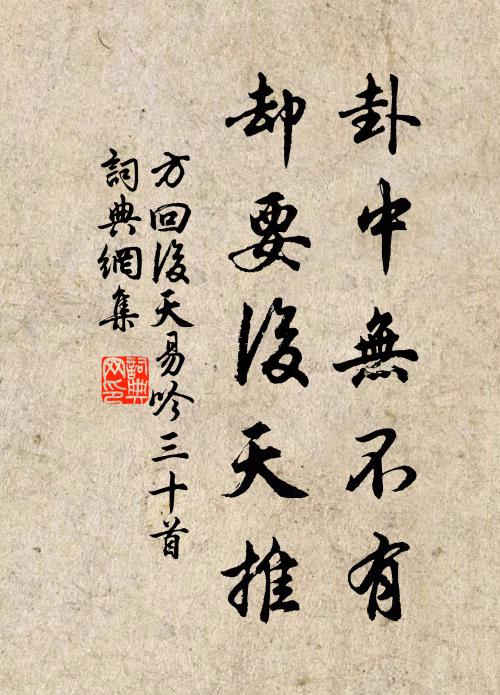 卦中無不有
却要後天推
方回後天易吟三十首
詞典網集
詞典網印